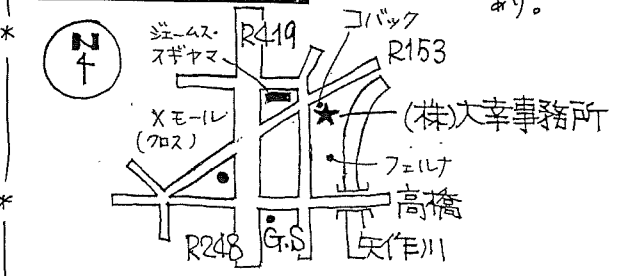 あり。
コバック
ジェームス・
スギヤマ
R419
R153
N
Xモール
(クロス)
(株)大幸事務所
フェルナ
高橋
R248
G.S
矢作川